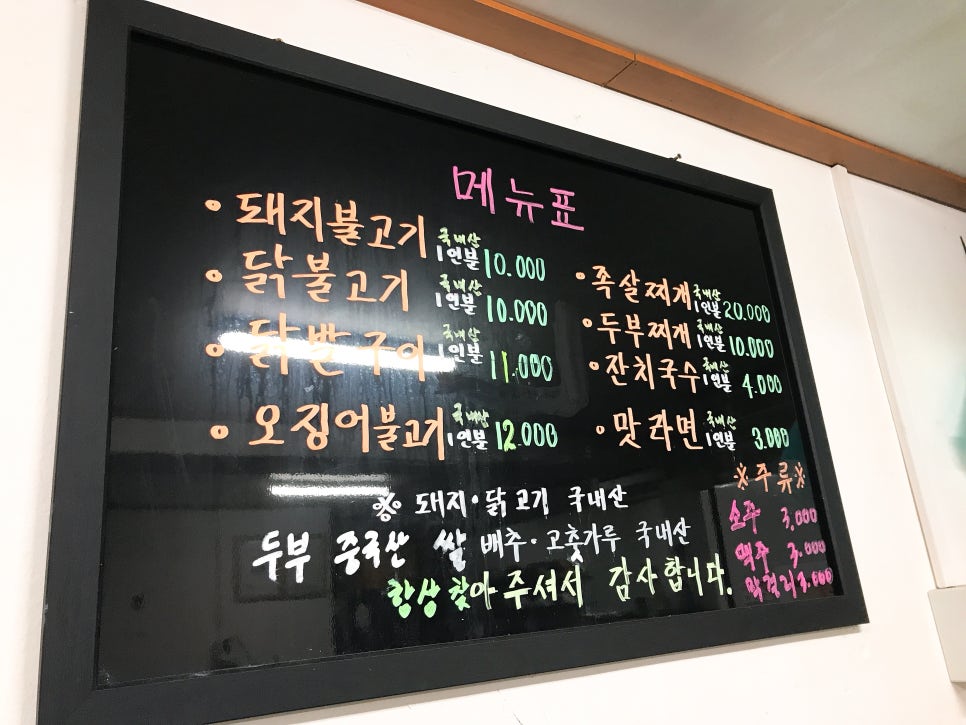 메뉴표
• 돼지불고기 국내산 1인분 10.000
• 닭불고기 국내산 1인분 10.000
• 닭발구이 국내산 1인분 11.000
• 오징어불고기 국내산 1인분 12.000
• 족살찌개 국내산 1인분 20.000
• 두부찌개 국내산 1인분 10.000
• 잔치국수 국내산 1인분 4.000
• 맛라면 국내산 1인분 3.000
※주류※
소주 3,000
맥주 3.000
막걸리 3.000
※ 돼지·닭고기 국내산
두부 중국산 쌀 배추·고춧가루 국내산
항상 찾아 주셔서 감사합니다.